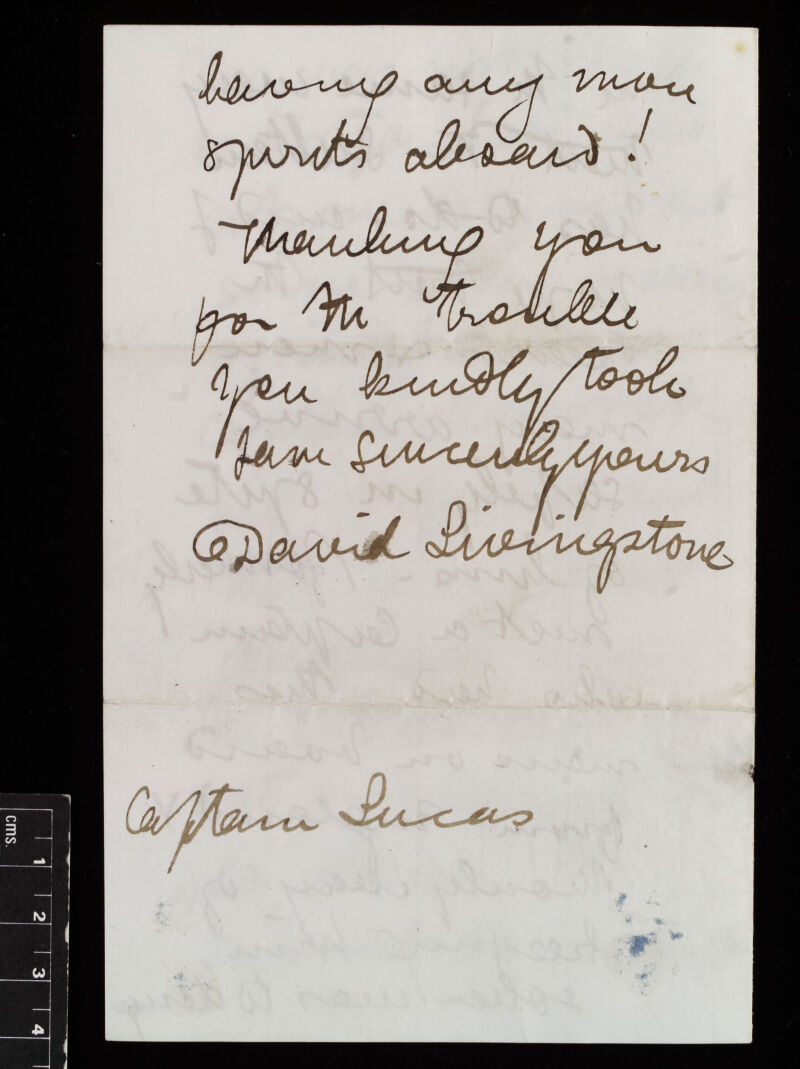 having any more
spirits aboard!
Thanking you
for the trouble
you kindly took
I am sincerely yours
David Livingstone
Captain Lucas
cms.
1
2
3
4